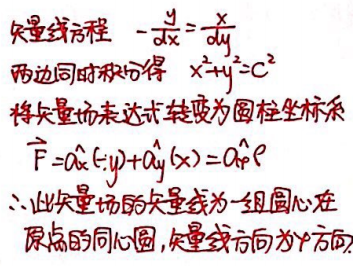 矢量线方程 -y/dx = x/dy
两边同时积分得 x²+y²=C²
将矢量场表达式转变为圆柱坐标系
F⃗=âx(-y)+ây(x)=âφρ
∴此矢量场的矢量线为一组圆心在
原点的同心圆,矢量线方向为φ方向